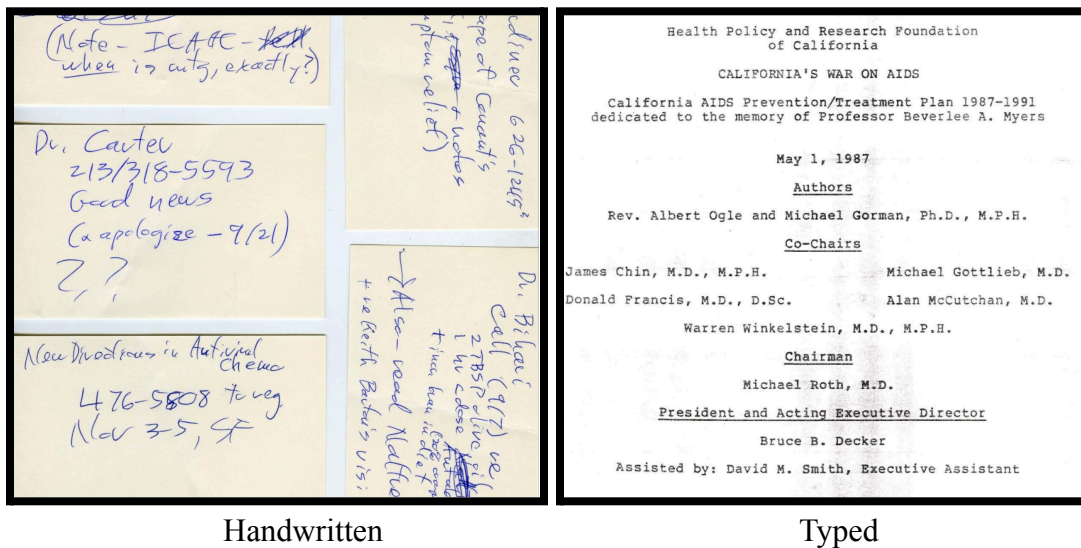 (Note - ICAAC -
when is mtg, exactly?)
Dr. Carter
213/318-5593
Good news
(& apologize - 9/21)
?, ?
New Directions in Antiviral
Chemo
476-5808 to reg
Nov 3-5, SF
626-1249
tape of Conant's
+ notes
symptom relief)
Dr. Bihari
Call (9/7) re
2 TBSP olive oil
1 hr c dose
+ in diet
→ Also - read
+ re Keith Barton's visi
Handwritten
Health Policy and Research Foundation
of California
CALIFORNIA'S WAR ON AIDS
California AIDS Prevention/Treatment Plan 1987-1991
dedicated to the memory of Professor Beverlee A. Myers
May 1, 1987
Authors
Rev. Albert Ogle and Michael Gorman, Ph.D., M.P.H.
Co-Chairs
James Chin, M.D., M.P.H. Michael Gottlieb, M.D.
Donald Francis, M.D., D.Sc. Alan McCutchan, M.D.
Warren Winkelstein, M.D., M.P.H.
Chairman
Michael Roth, M.D.
President and Acting Executive Director
Bruce B. Decker
Assisted by: David M. Smith, Executive Assistant
Typed